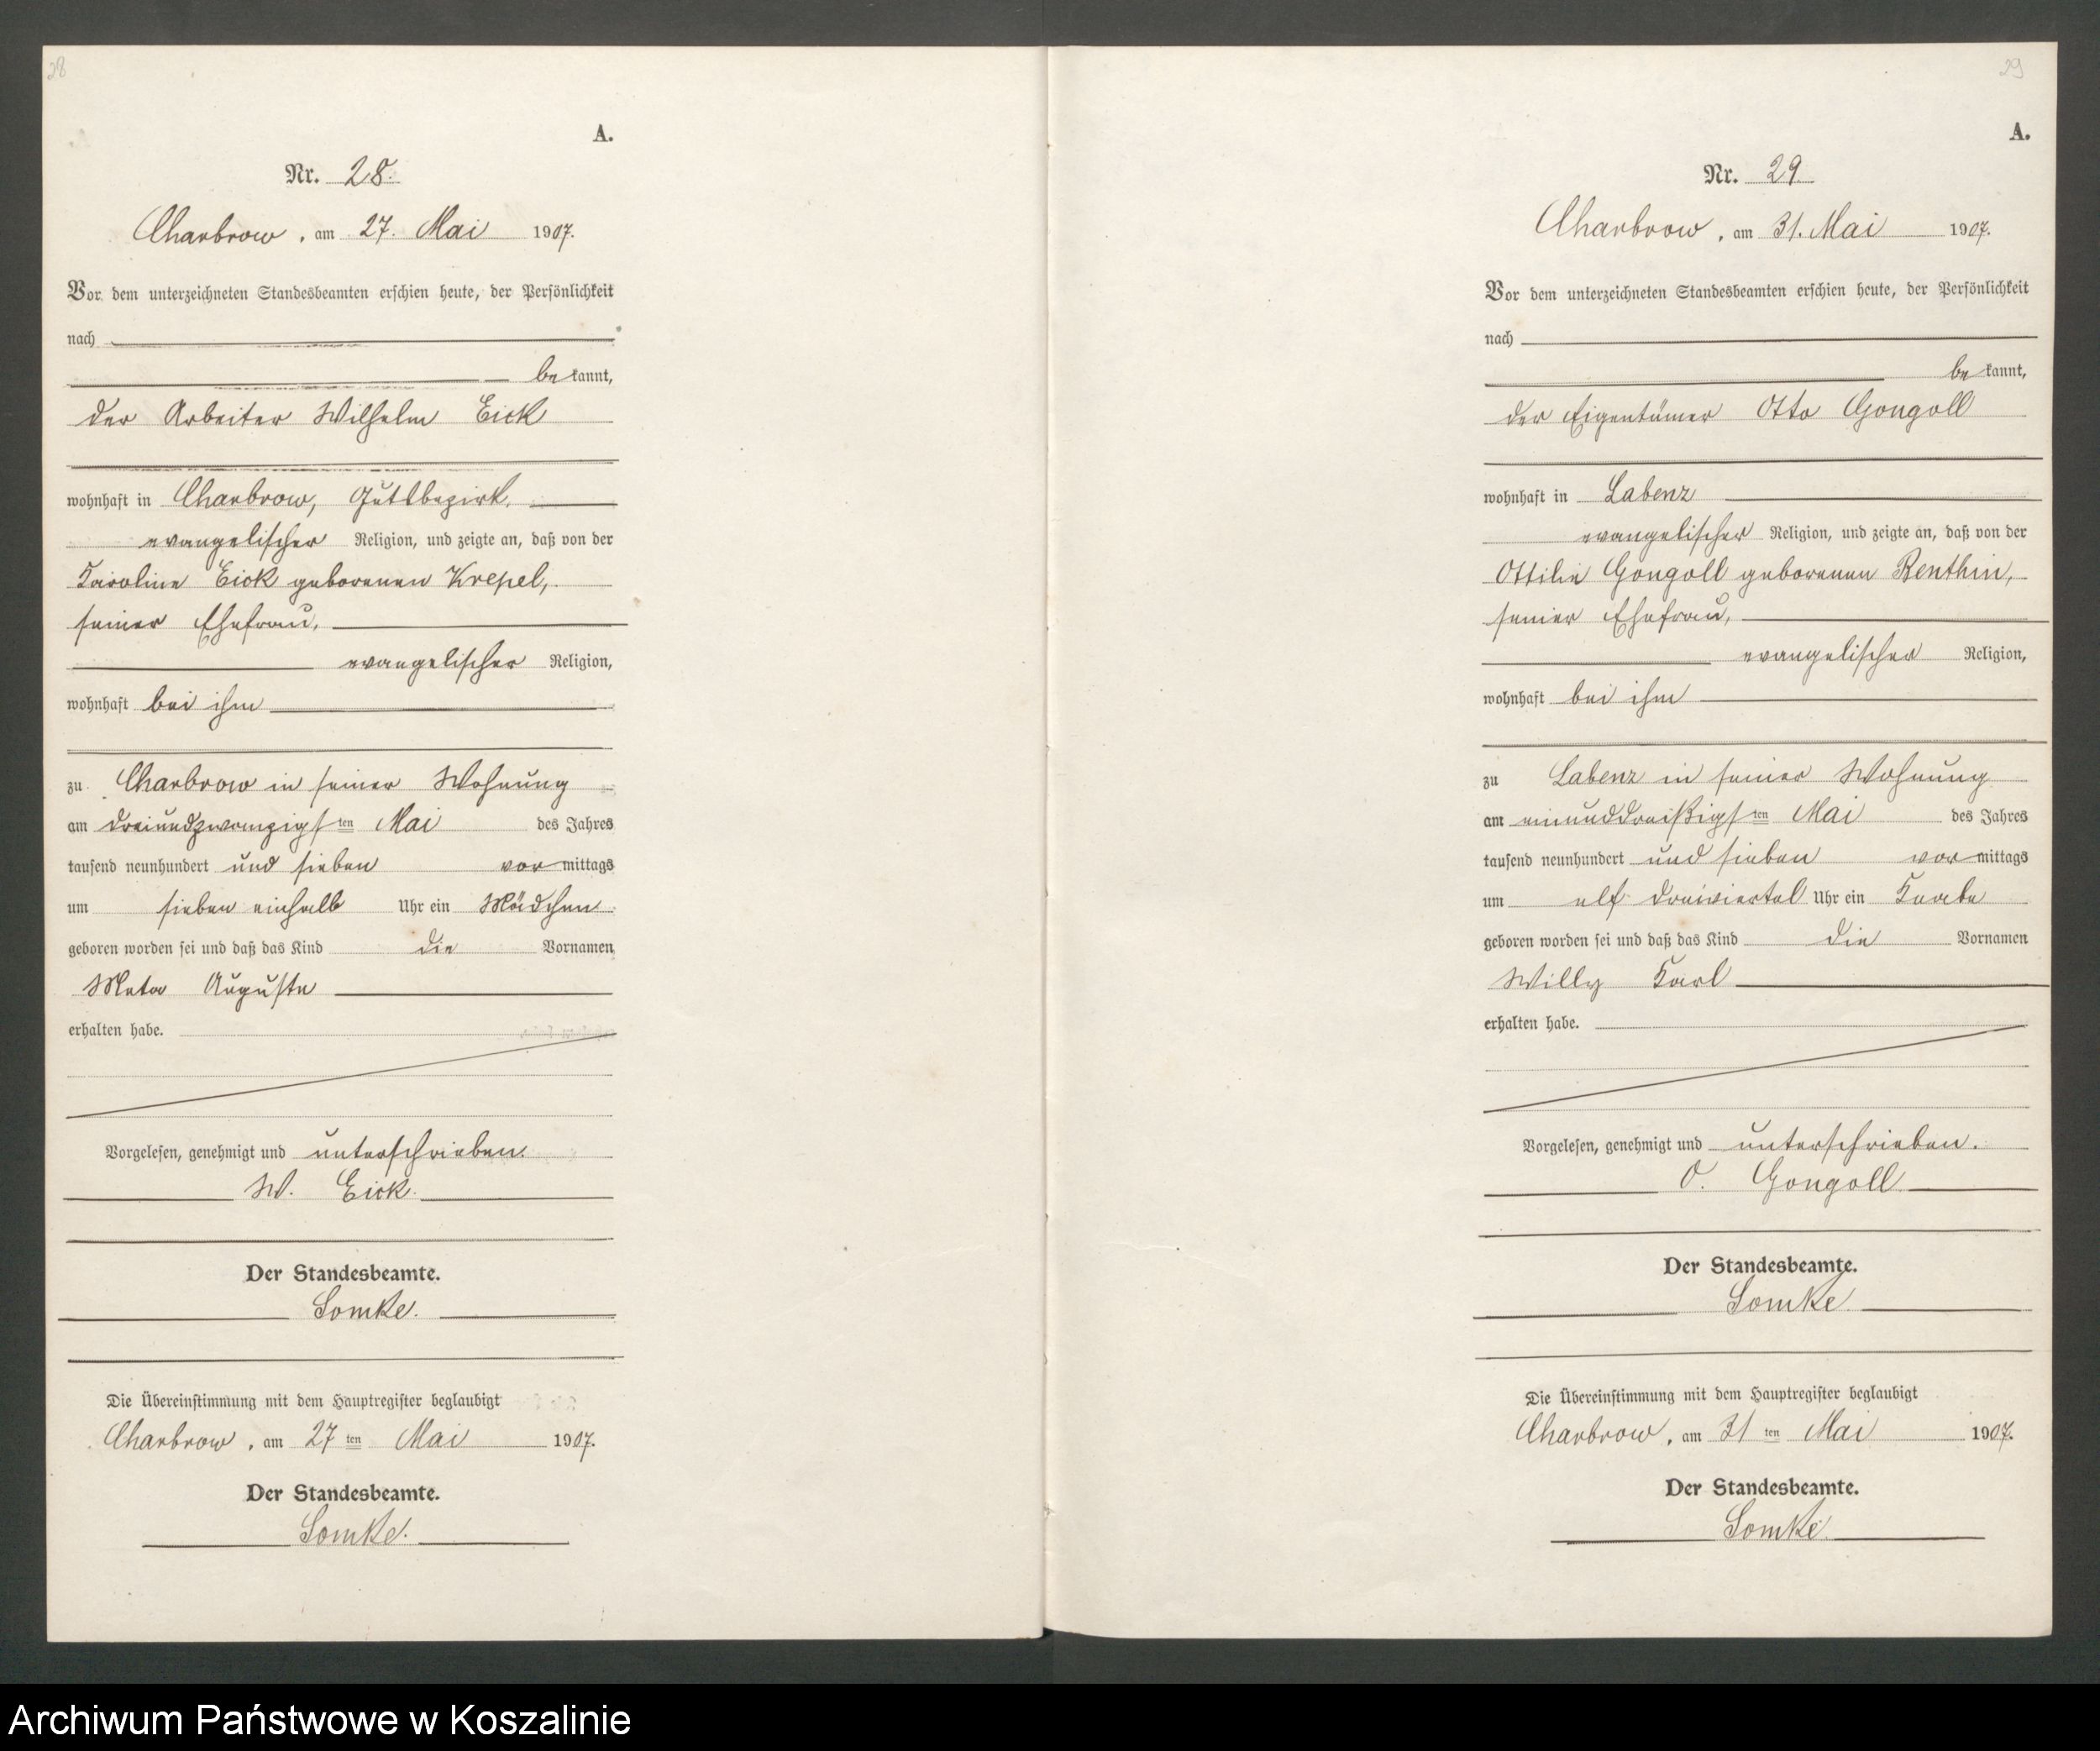 28
A.
Nr. 28.
Charbrow, am 27. Mai 1907.
Vor dem unterzeichneten Standesbeamten erschien heute, der Persönlichkeit
nach
be kannt,
der Arbeiter Wilhelm Eick
wohnhaft in Charbrow, Gutsbezirk,
evangelischer Religion, und zeigte an, daß von der
Karoline Eick geborenen Krepel,
seiner Ehefrau,
evangelischer Religion,
wohnhaft bei ihm
zu Charbrow in seiner Wohnung
am dreiundzwanzigsten Mai des Jahres
tausend neunhundert und sieben vor mittags
um sieben einhalb Uhr ein Mädchen
geboren worden sei und daß das Kind die Vornamen
Meta Auguste
erhalten habe.
Vorgelesen, genehmigt und unterschrieben.
W. Eick.
Der Standesbeamte.
Lomke.
Die Übereinstimmung mit dem Hauptregister beglaubigt
Charbrow, am 27 ten Mai 1907.
Der Standesbeamte.
Lomke.
29
A.
Nr. 29
Charbrow, am 31. Mai 1907.
Vor dem unterzeichneten Standesbeamten erschien heute, der Persönlichkeit
nach
be kannt,
der Eigentümer Otto Gongoll
wohnhaft in Labenz
evangelischer Religion, und zeigte an, daß von der
Ottilie Gongoll geborenen Renthin,
seiner Ehefrau,
evangelischer Religion,
wohnhaft bei ihm
zu Labenz in seiner Wohnung
am einunddreißigsten Mai des Jahres
tausend neunhundert und sieben vor mittags
um elf dreiviertel Uhr ein Knabe
geboren worden sei und daß das Kind die Vornamen
Willy Karl
erhalten habe.
Vorgelesen, genehmigt und unterschrieben.
O. Gongoll
Der Standesbeamte.
Lomke
Die Übereinstimmung mit dem Hauptregister beglaubigt
Charbrow, am 31 ten Mai 1907.
Der Standesbeamte.
Lomke
Archiwum Państwowe w Koszalinie